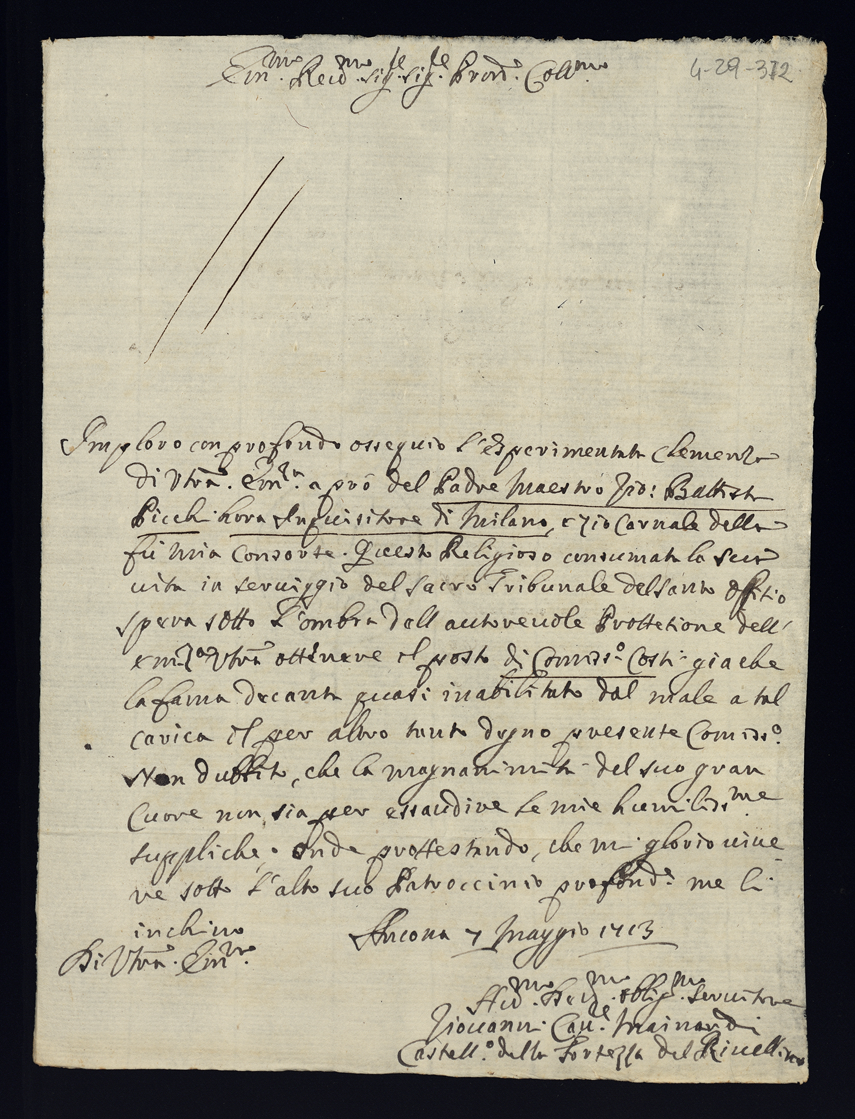 Em.mo Reu.mo Sig.re Sig.re Pron. Coll.mo
4-29-312
Imploro con profondo ossequio l'esperimentata Clemenza
di Vtra. Em.za a prò del Padre Maestro Gio: Battista
Picchi hora Inquisitore di Milano, e Zio Carnale della
fù mia Consorte. Questo Religioso consumata la sua
uita in seruiggio del Sacro Tribunale del Santo Offitio
spera sotto l'ombra dell autoreuole Prottetione dell'
Em.za Vtra ottenere il posto di Comiss.o Costì giache
la fama decanta quasi inabilitato dal male a tal
carica il per altro tanto degno presente Comiss.o
Non dubbito, che la magnanimita del suo gran
Cuore non sia per essaudire le mie humiliss.me
suppliche; onde prottestando, che mi glorio uiue
re sotto l'alto suo Patroccinio profond.e me li
inchino
Ancona 7 Maggio 1713
Di Vtra. Em.za
Hu.mo Deu.mo Oblig.mo Seruitore
Giouanni Cau.re Mainardi
Castell.o della Fortezza del Riuellino